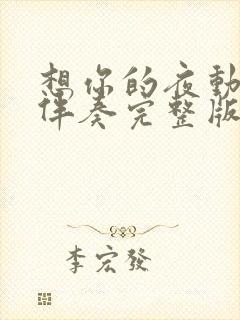 想你的夜動
伴奏完整版
李宏發